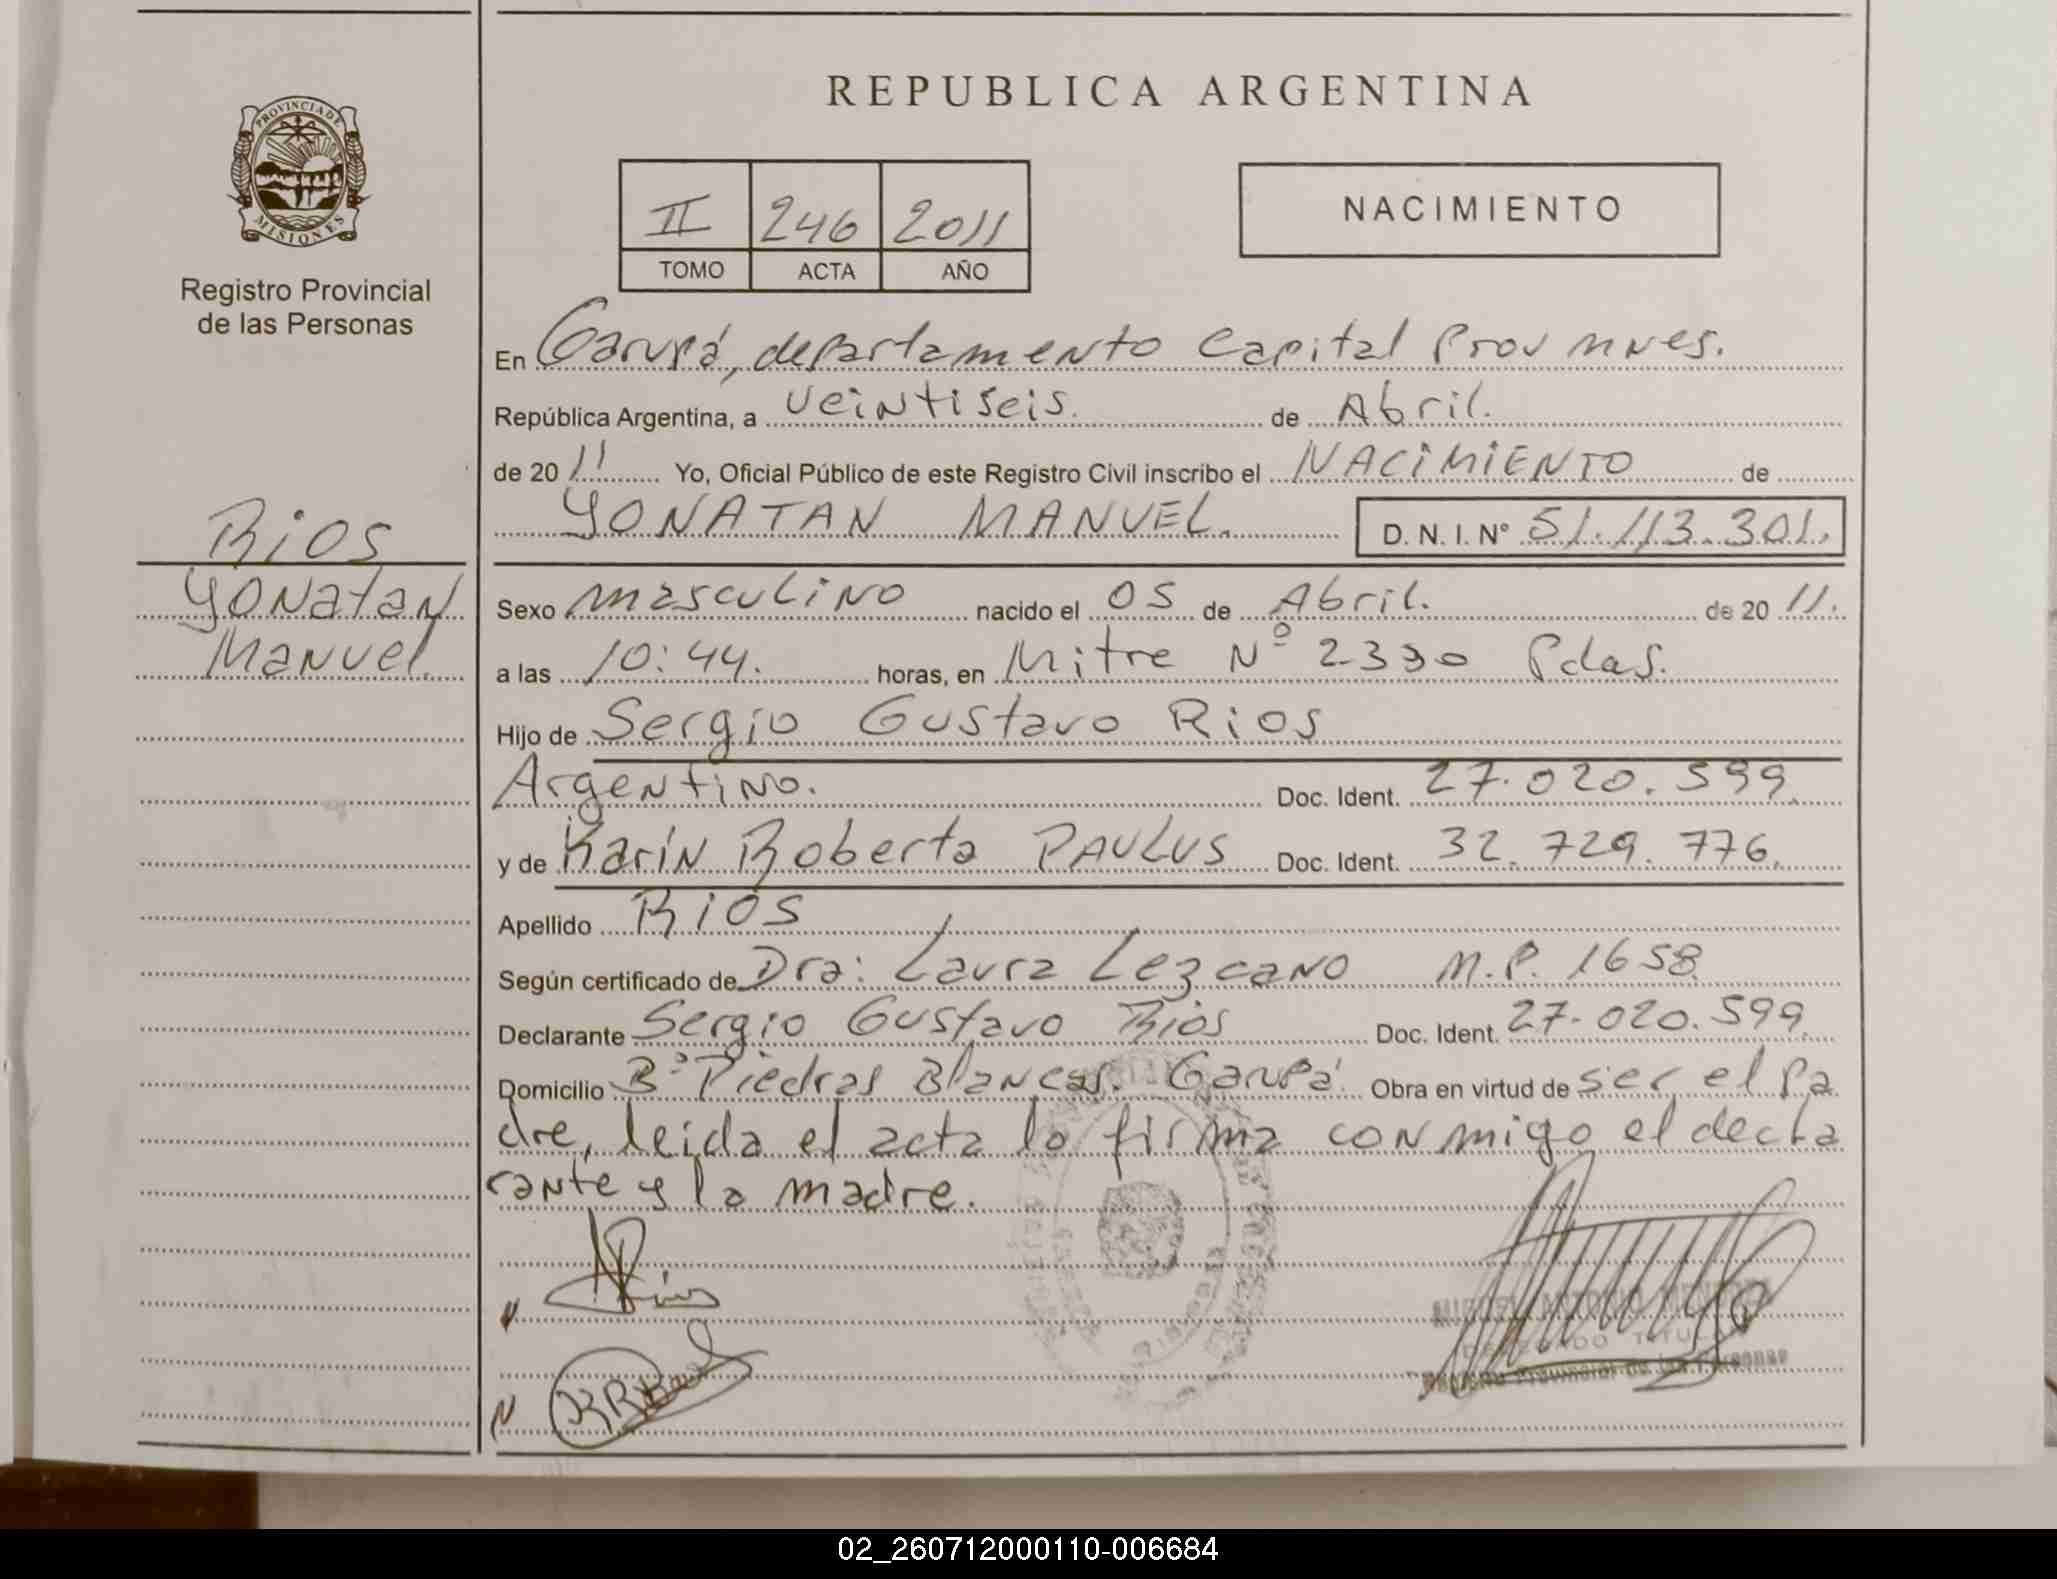 REPUBLICA ARGENTINA
PROVINCIA DE
MISIONES
Registro Provincial
de las Personas
II 246 2011
TOMO ACTA AÑO
NACIMIENTO
En Garupá, departamento Capital Prov mnes.
República Argentina, a veintiseis. de Abril.
de 2011 Yo, Oficial Público de este Registro Civil inscribo el NACIMIENTO de
YONATAN MANUEL. D. N. I. Nº 51.113.301.
Rios
Yonatan
Manuel.
Sexo masculino nacido el 05 de Abril. de 2011.
a las 10:44. horas, en Mitre Nº 2330 Pdas.
Hijo de Sergio Gustavo Rios
Argentino. Doc. Ident. 27.020.599.
y de Karin Roberta PAULUS Doc. Ident. 32.729.776.
Apellido Rios
Según certificado de Dra: Laura Lezcano M.P. 1658
Declarante Sergio Gustavo Rios Doc. Ident. 27.020.599.
Domicilio Bº Piedras Blancas. Garupá. Obra en virtud de ser el pa
dre, leida el acta lo firma conmigo el decla
rante y la madre.
MIGUEL ANTONIO
DELEGADO TITULAR
Registro Provincial de las Personas
02_260712000110-006684